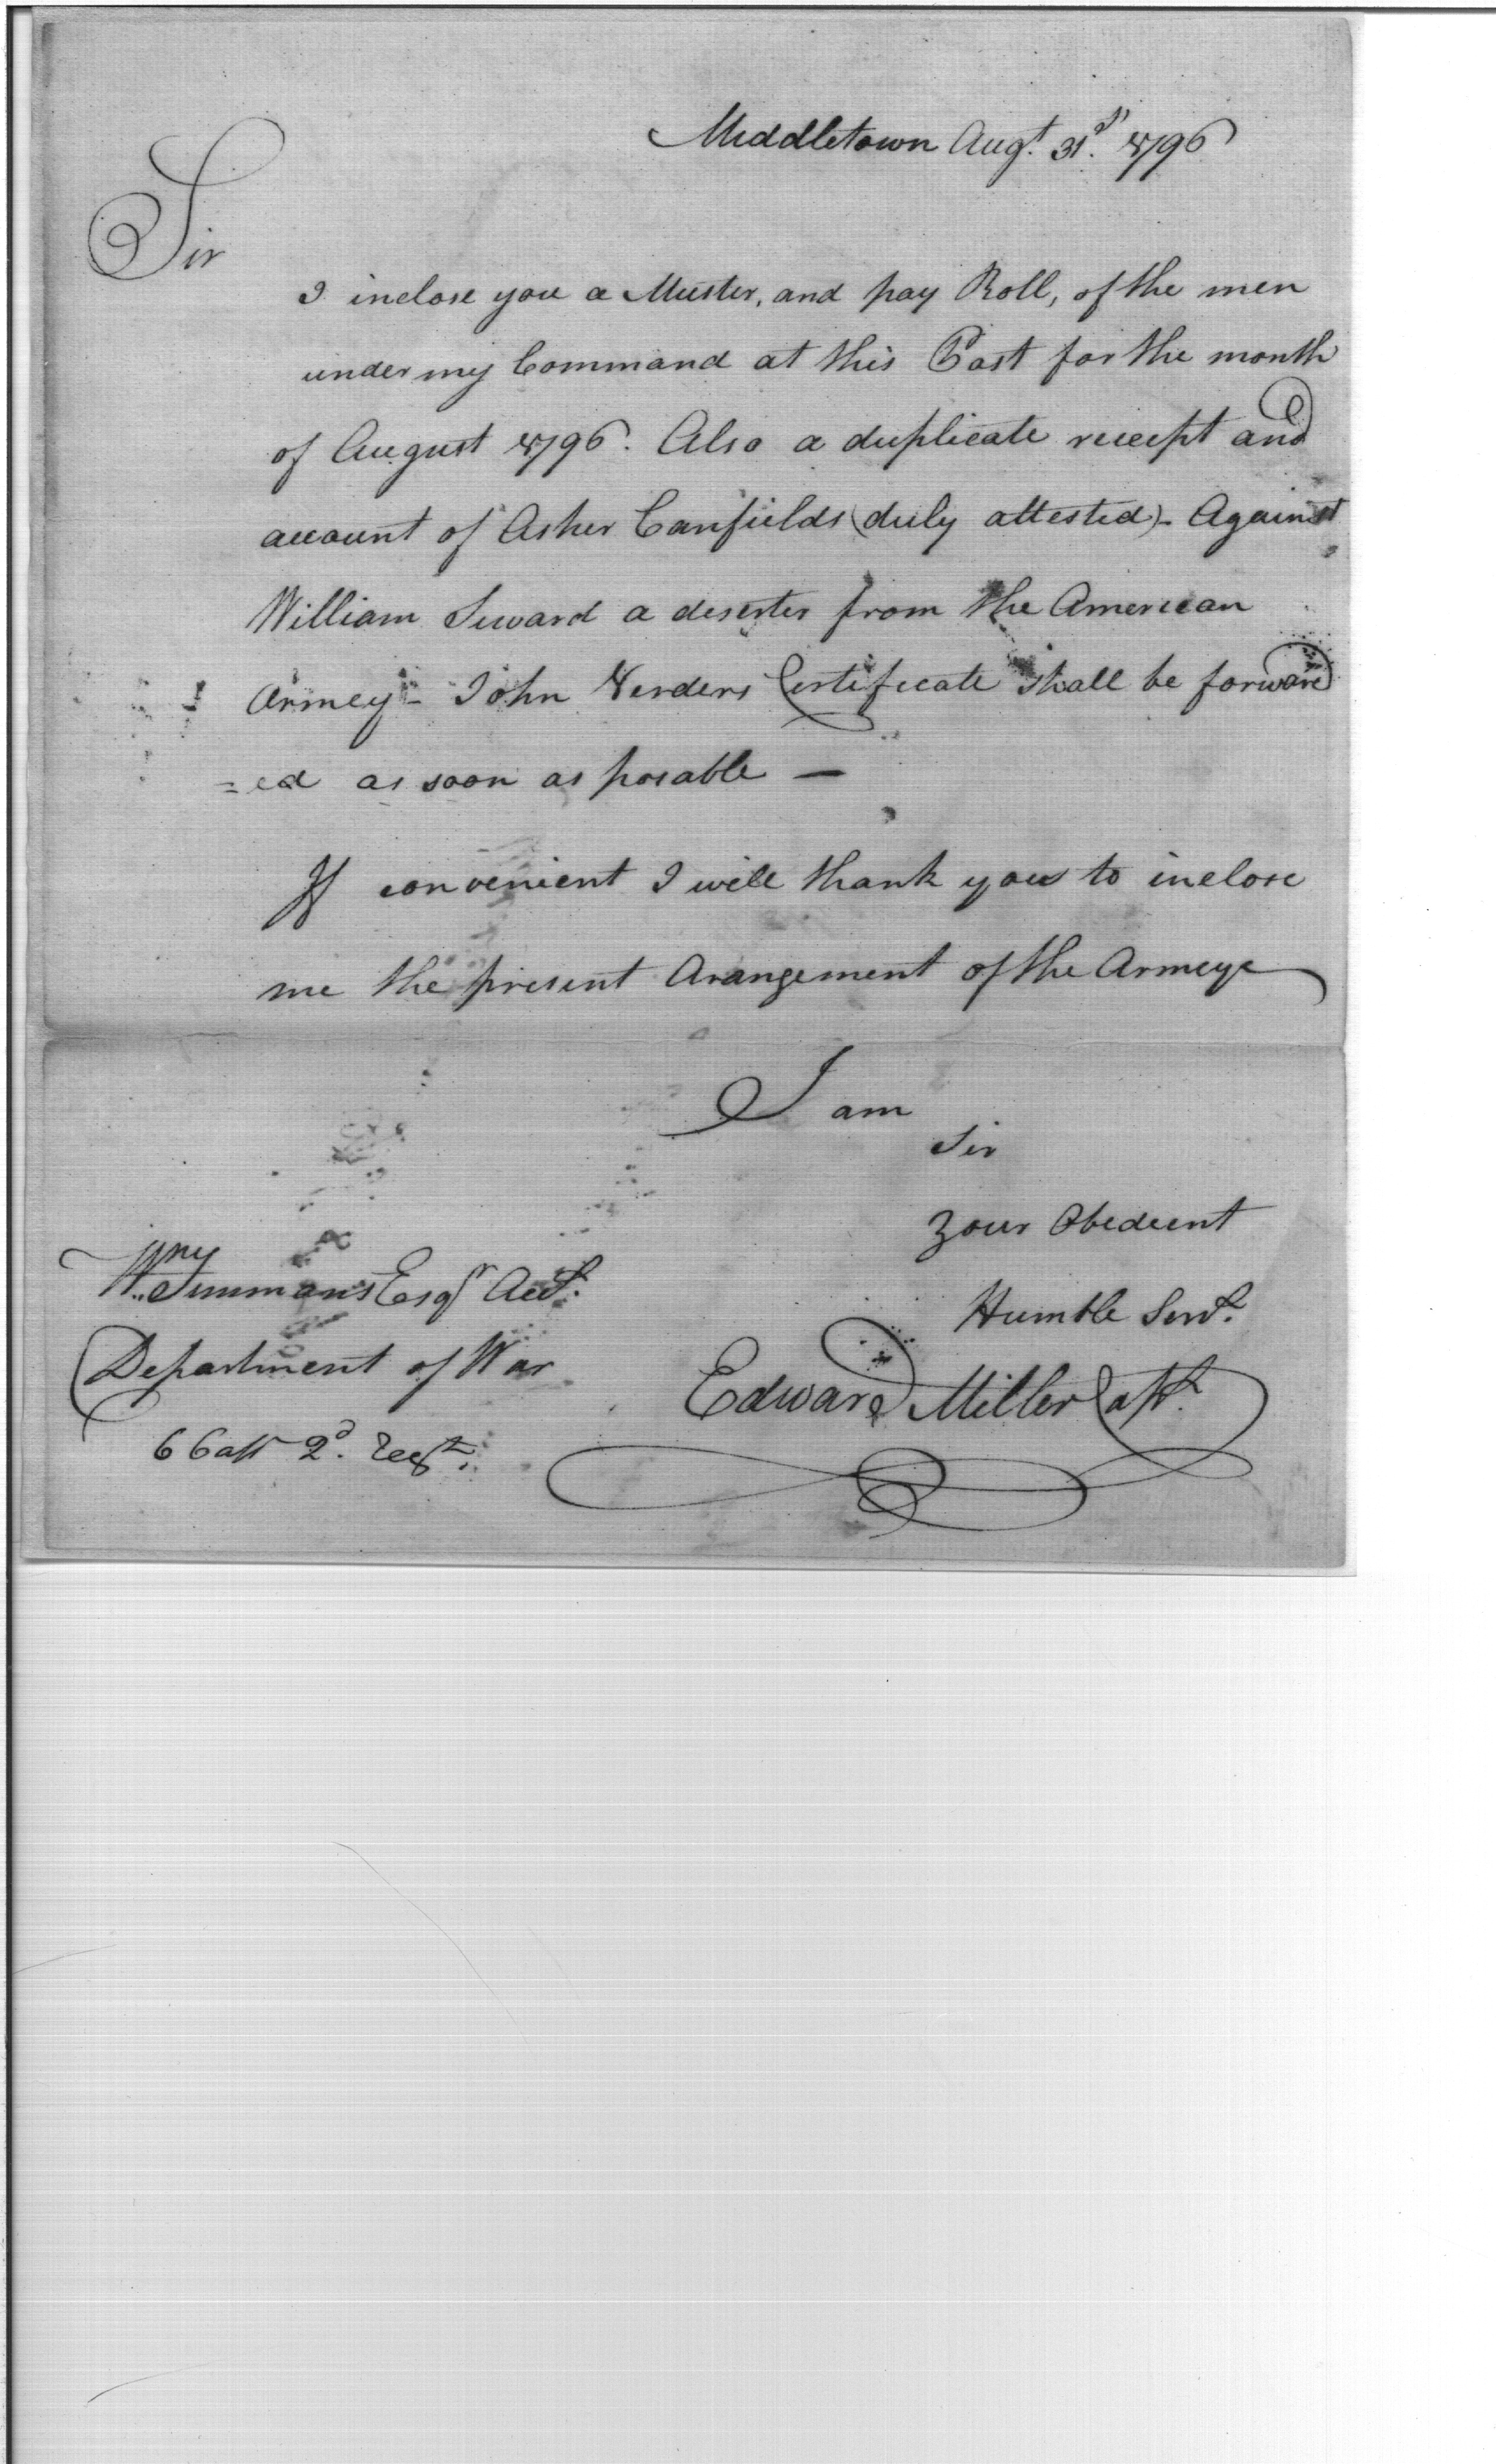 Middletown Augt. 31st. 1796
Sir
I inclose you a Muster, and pay Roll, of the men
under my Command at this Post for the month
of August 1796. Also a duplicate receipt and
account of Asher Canfields (duly attested) - Against
William Seward a deserter from the American
Armey - John Certificate shall be forward
=ed as soon as posable —
If convenient I will thank you to inclose
me the present Arangement of the Armeye
I am
Sir
Your Obedeent
Humble Servt.
Wm Simmons Esqr Acct.
Department of War
Edward Miller Capt.
2d. Regt.